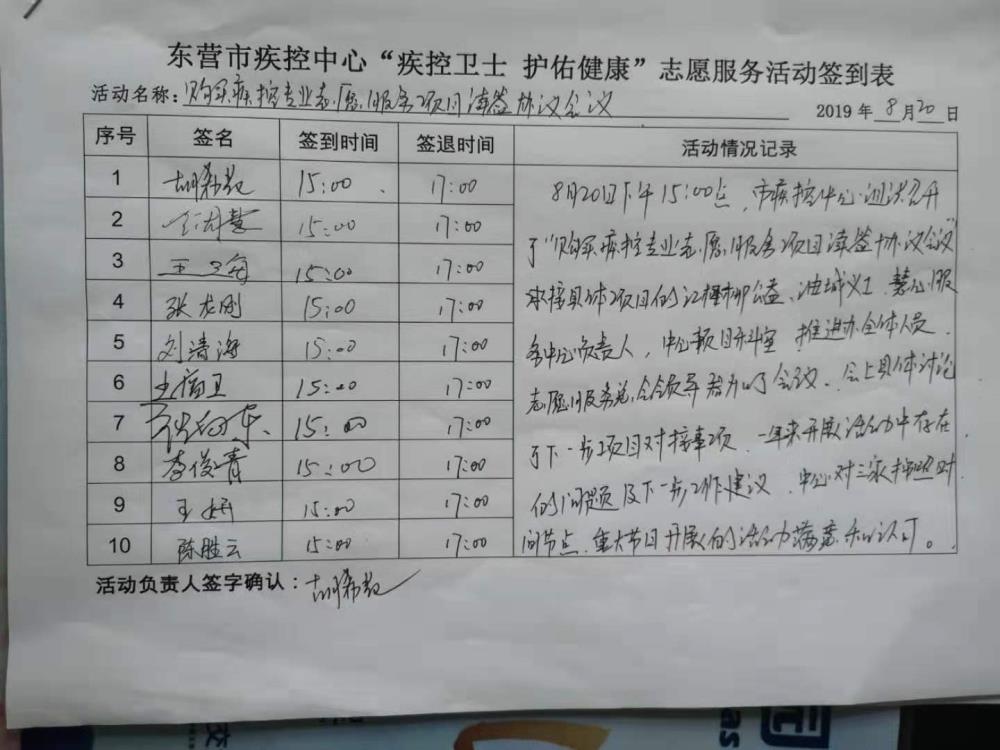 东营市疾控中心“疾控卫士 护佑健康”志愿服务活动签到表
活动名称：购买疾控专业志愿服务项目续签协议会议
2019年8月20日
序号 签名 签到时间 签退时间 活动情况记录
1 15:00 17:00
2 15:00 17:00
3 15:00 17:00
4 张龙刚 15:00 17:00
5 刘清海 15:00 17:00
6 15:00 17:00
7 15:00 17:00
8 李俊青 15:00 17:00
9 王娟 15:00 17:00
10 陈胜云 15:00 17:00
8月20日下午15:00点，市疾控中心召开
了“购买疾控专业志愿服务项目续签协议会议”
承接具体项目的红柳公益、油城义工、慧心服
务中心负责人，中心项目科室、推进办全体人员、
志愿服务总会领导参加了会议、会上具体讨论
了下一步项目对接事项、一年来开展活动中存在
的问题及下一步工作建议、中心对三家按照时
间节点、重大节日开展的活动满意和认可。
活动负责人签字确认：